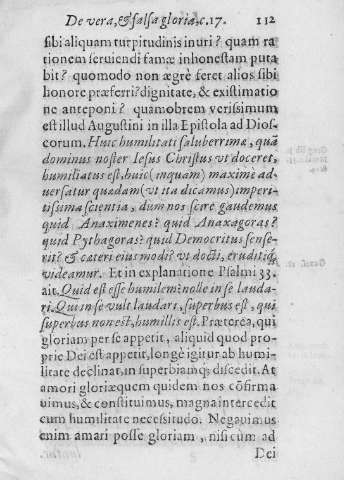 De vera, & falsa gloria, c. 17. 112
sibi aliquam turpitudinis inuri? quam ra
tionem seruiendi famæ inhonestam puta
bit? quomodo non ægrè feret alios sibi
honore præferri? dignitate, & existimatio
ne anteponi? quamobrem verissimum
est illud Augustini in illa Epistola ad Dios
corum. Huic humilitati saluberrimæ, quã
dominus noster Iesus Christus vt doceret,
humiliatus est, huic (inquam) maximè ad
uersatur quædam (vt ita dicamus) imperi-
tissima scientia, dum nos scire gaudemus
quid Anaximenes? quid Anaxagoras?
quid Pythagoras? quid Democritus sense-
rit? & cæteri eiusmodi? vt docti, eruditiq́;
videamur. Et in explanatione Psalmi 33.
ait. Quid est esse humilem? nolle in se lauda-
ri. Qui in se vult laudari, superbus est, qui
superbus non est, humilis est. Præterea, qui
gloriam per se appetit, aliquid quod pro-
prie Dei est appetit, longè igitur ab humi-
litate declinat, in superbiamq́; discedit. At
amori gloriæ quem quidem nos cõfirma
uimus, & constituimus, magna intercedit
cum humilitate necessitudo. Negauimus
enim amari posse gloriam, nisi cùm ad
Dei